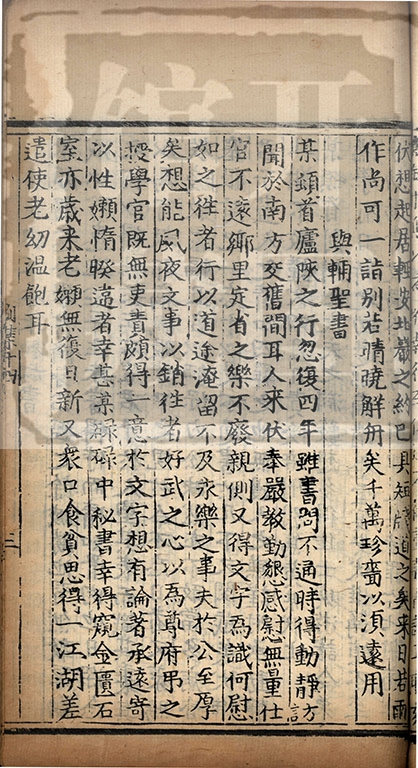 伏想起居輕安北嚴之約已具短牘道之矣来日若雨
作尚可一詣別若晴曉解舟矣千萬珍嗇以湏遠用
與輔聖書
某頓首廬陜之行忽復四年雖書問不通時得動靜方言
聞於南方交舊間耳人来伏奉嚴教勤懇感慰無量仕
官不遠鄉里定省之樂不廢親側又得文字為識何慰
如之往者行以道途淹留不及永樂之事夫於公至厚
矣想能夙夜文事以銷往者好武之心以為尊府弔之
授學官既無吏責頗得一意於文字想有論著承遠寄
以性嬾惰暌遠者幸甚某碌碌中秘書幸得窺金匱石
室亦歲来老嬾無復日新又衆口食貧思得一江湖差
遣使老幼温飽耳
十四
三